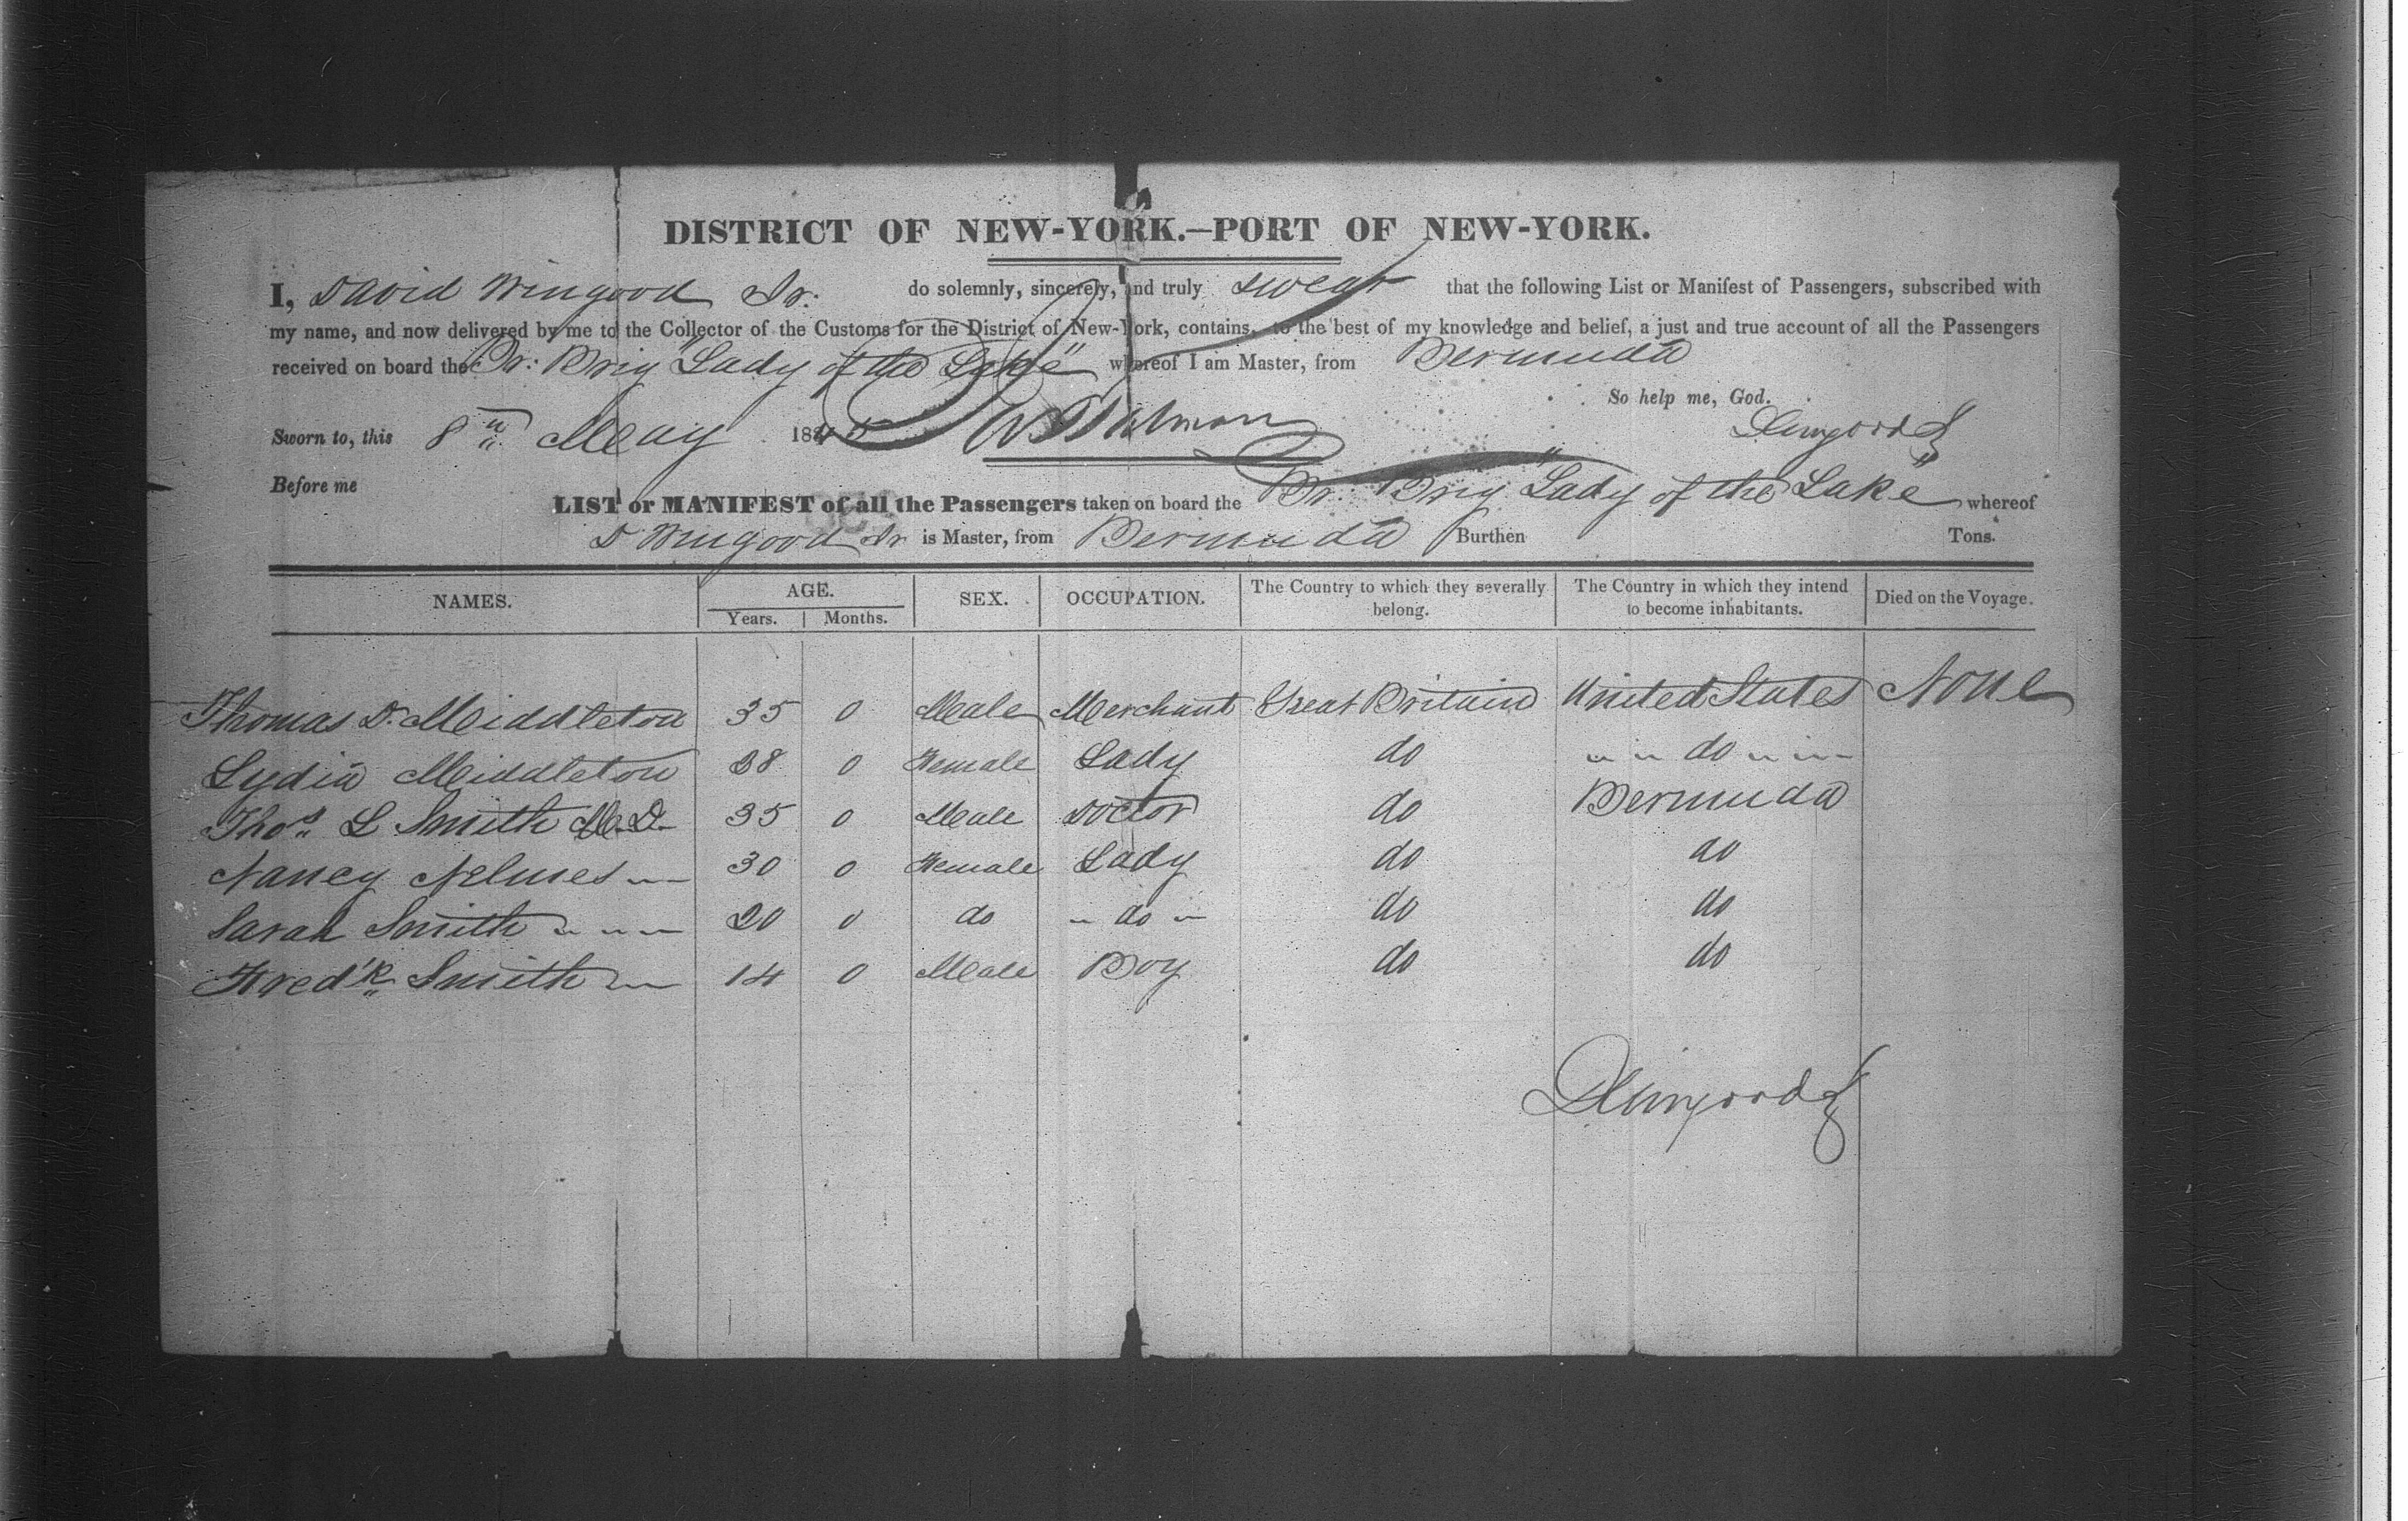 DISTRICT OF NEW-YORK.—PORT OF NEW-YORK.
I, David Wingood Jr. do solemnly, sincerely, and truly swear that the following List or Manifest of Passengers, subscribed with
my name, and now delivered by me to the Collector of the Customs for the District of New-York, contains, to the best of my knowledge and belief, a just and true account of all the Passengers
received on board the Br: Brig "Lady of the Lake" whereof I am Master, from Bermuda
So help me, God.
Sworn to, this 8th May 1845 DWingood Jr
Before me
LIST or MANIFEST of all the Passengers taken on board the Br: Brig "Lady of the Lake" whereof
D Wingood Jr is Master, from Bermuda Burthen Tons.
NAMES. AGE. Years. Months. SEX. OCCUPATION. The Country to which they severally belong. The Country in which they intend to become inhabitants. Died on the Voyage.
Thomas D. Middleton 35 0 Male Merchant Great Britain United States None
Lydia Middleton 38 0 Female Lady do do
Thos L Smith M.D. 35 0 Male Doctor do Bermuda
Nancy Nelmes 30 0 Female Lady do do
Sarah Smith 20 0 do do do do
Fred'k Smith 14 0 Male Boy do do
DWingood Jr